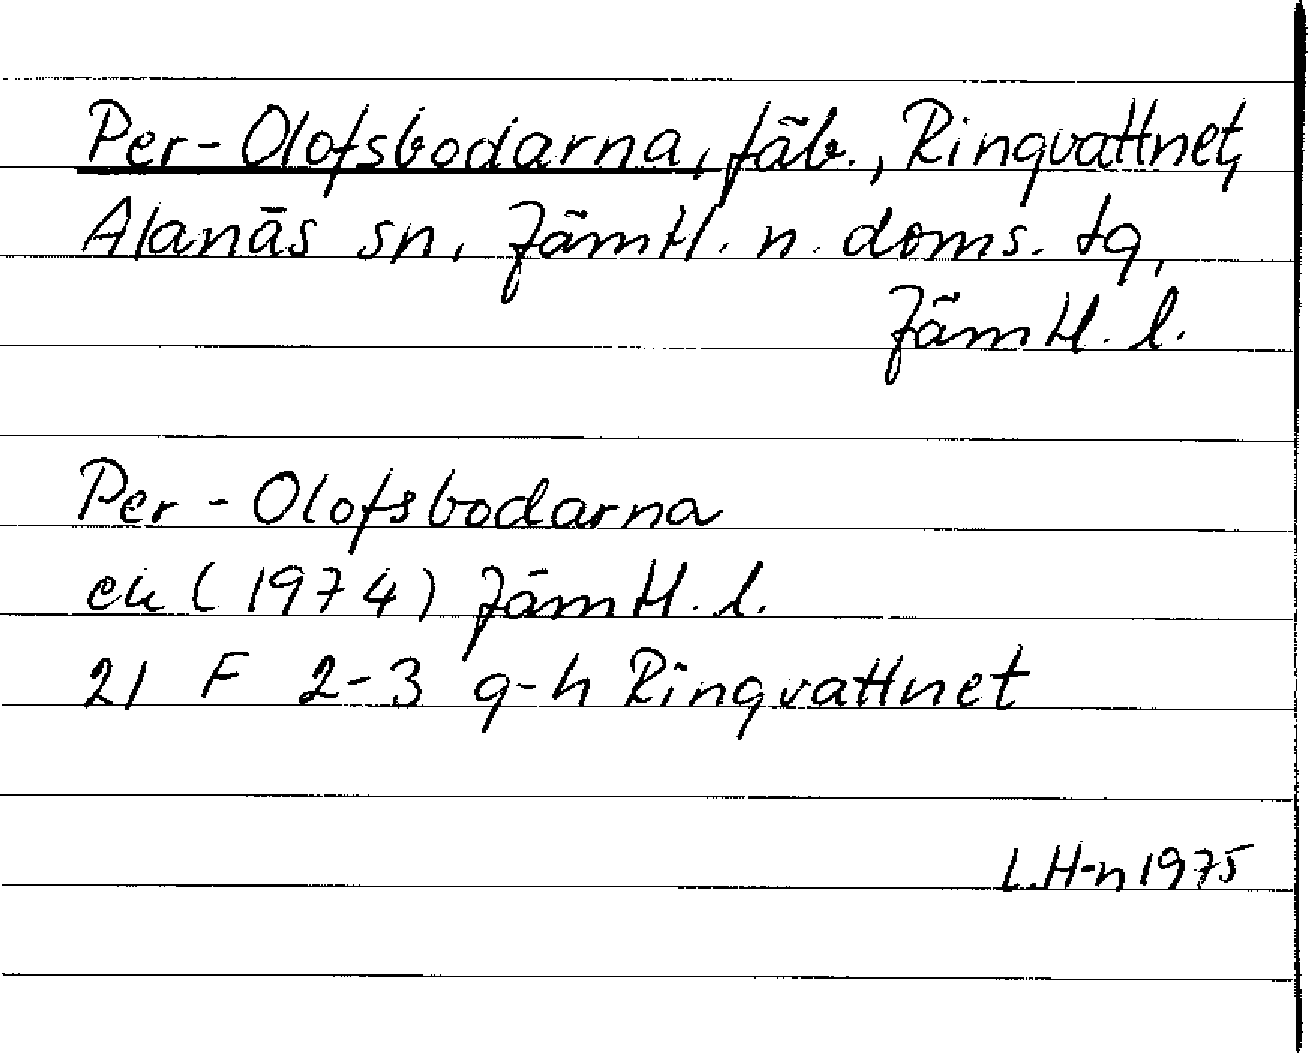 Per-Olofsbodarna, fäb., Ringvattnet,
Alanäs sn, Jämtl. n. doms. tg,
Jämtl. l.
Per-Olofsbodarna
ek (1974) Jämtl. l.
21 F 2-3 g-h Ringvattnet
L.H-n 1975